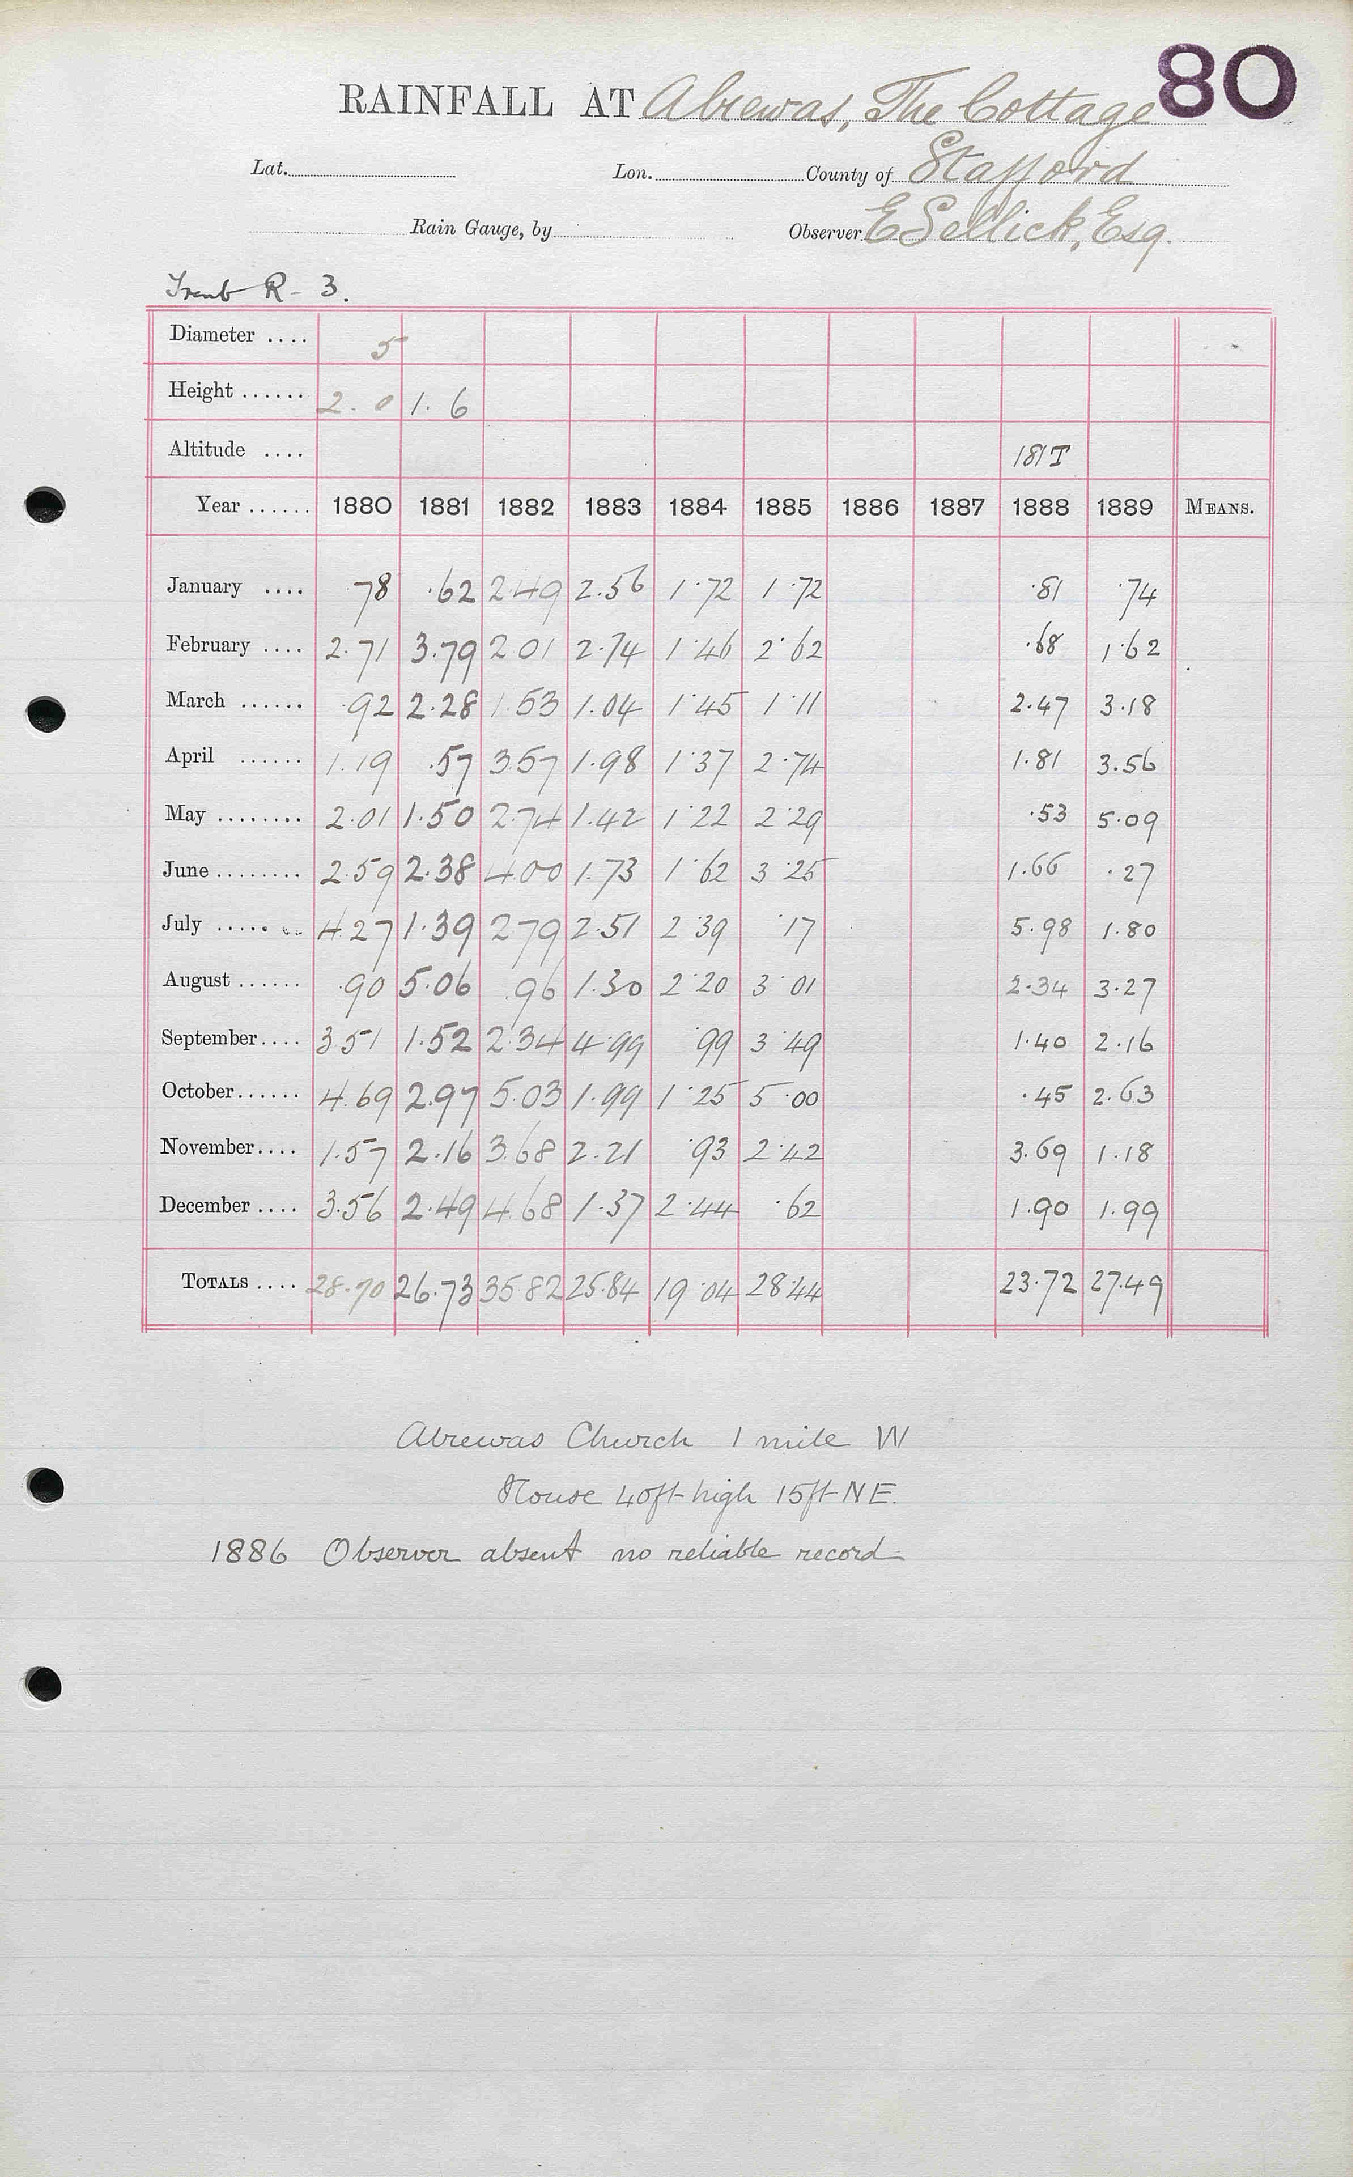 80
RAINFALL AT Alrewas, The Cottage
Lat. Lon. County of Stafford
Rain Gauge, by Observer E Sellick, Esq.
Trent R - 3.
Diameter .... 5
Height ...... 2.0 1.6
Altitude .... 181T
Year ...... 1880 1881 1882 1883 1884 1885 1886 1887 1888 1889 MEANS.
January .... 78 .62 2.49 2.56 1.72 1.72 .81 .74
February .... 2.71 3.79 2.01 2.74 1.46 2.62 .68 1.62
March ...... .92 2.28 1.53 1.04 1.45 1.11 2.47 3.18
April ...... 1.19 .57 3.57 1.98 1.37 2.74 1.81 3.56
May ........ 2.01 1.50 2.74 1.42 1.22 2.29 .53 5.09
June ........ 2.59 2.38 4.00 1.73 1.62 3.25 1.66 .27
July ........ 4.27 1.39 2.79 2.51 2.39 .17 5.98 1.80
August ...... .90 5.06 .96 1.30 2.20 3.01 2.34 3.27
September .... 3.51 1.52 2.34 4.99 .99 3.49 1.40 2.16
October ...... 4.69 2.97 5.03 1.99 1.25 5.00 .45 2.63
November .... 1.57 2.16 3.68 2.21 .93 2.42 3.69 1.18
December .... 3.56 2.49 4.68 1.37 2.44 .62 1.90 1.99
TOTALS .... 28.70 26.73 35.82 25.84 19.04 28.44 23.72 27.49
Alrewas Church 1 mile W
House 40ft high 15ft NE.
1886 Observer absent no reliable record